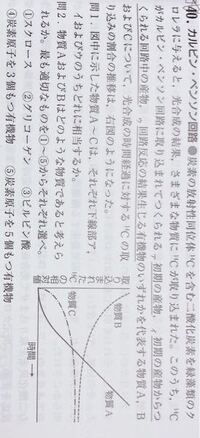 100. カルビン・ベンソン回路 ●炭素の放射性同位体¹⁴Cを含む二酸化炭素を緑藻類のク
ロレラに与えると，光合成の結果，さまざまな物質に¹⁴Cが取り込まれた。このうち，¹⁴C
がカルビン・ベンソン回路に取り込まれてつくられるァ初期の産物，ィ初期の産物からつ
くられる回路中の産物，ゥ回路反応の結果生じる有機物のいずれかを代表する物質A，B
およびCについて，光合成の時間経過に対する¹⁴Cの取
り込みの割合の推移は，右図のようになった。
問1．図中に示した物質A～Cは，それぞれ下線部ア，
イおよびウのうちどれに相当するか。
問2．物質AおよびBはどのような物質であると考えら
れるか。最も適切なものを①～⑤からそれぞれ選べ。
①スクロース ②グリコーゲン ③ピルビン酸
④炭素原子を3個もつ有機物 ⑤炭素原子を5個もつ有機物
取り込まれた¹⁴Cの相対値
物質B
物質A
物質C
時間 →